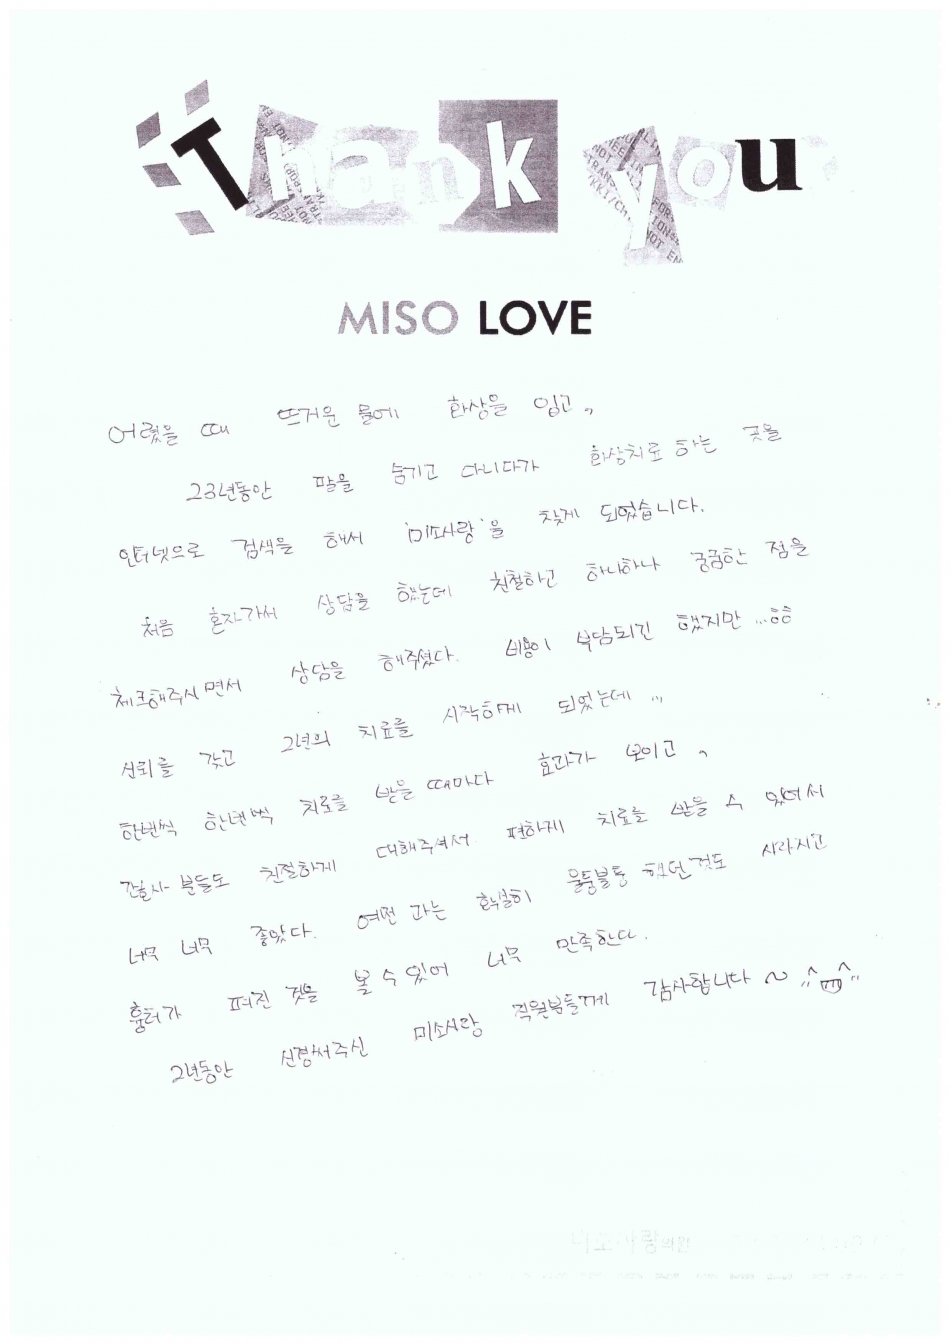 Thank you
MISO LOVE
어렸을 때 뜨거운 물에 화상을 입고,
23년동안 팔을 숨기고 다니다가 화상치료 하는 곳을
인터넷으로 검색을 해서 '미소사랑'을 찾게 되었습니다.
처음 혼자가서 상담을 했는데 친절하고 하나하나 궁금한 점을
체크해주시면서 상담을 해주셨다. 비용이 부담되긴 했지만...ㅎㅎ
신뢰를 갖고 2년의 치료를 시작하게 되었는데...
한번씩 한번씩 치료를 받을때마다 효과가 보이고,
간호사 분들도 친절하게 대해주셔서 편하게 치료를 받을 수 있어서
너무 너무 좋았다. 예전 과는 확실히 울퉁불퉁 했던것도 사라지고
흉터가 펴진 것을 볼 수 있어 너무 만족한다.
2년동안 신경써주신 미소사랑 직원분들께 감사합니다~